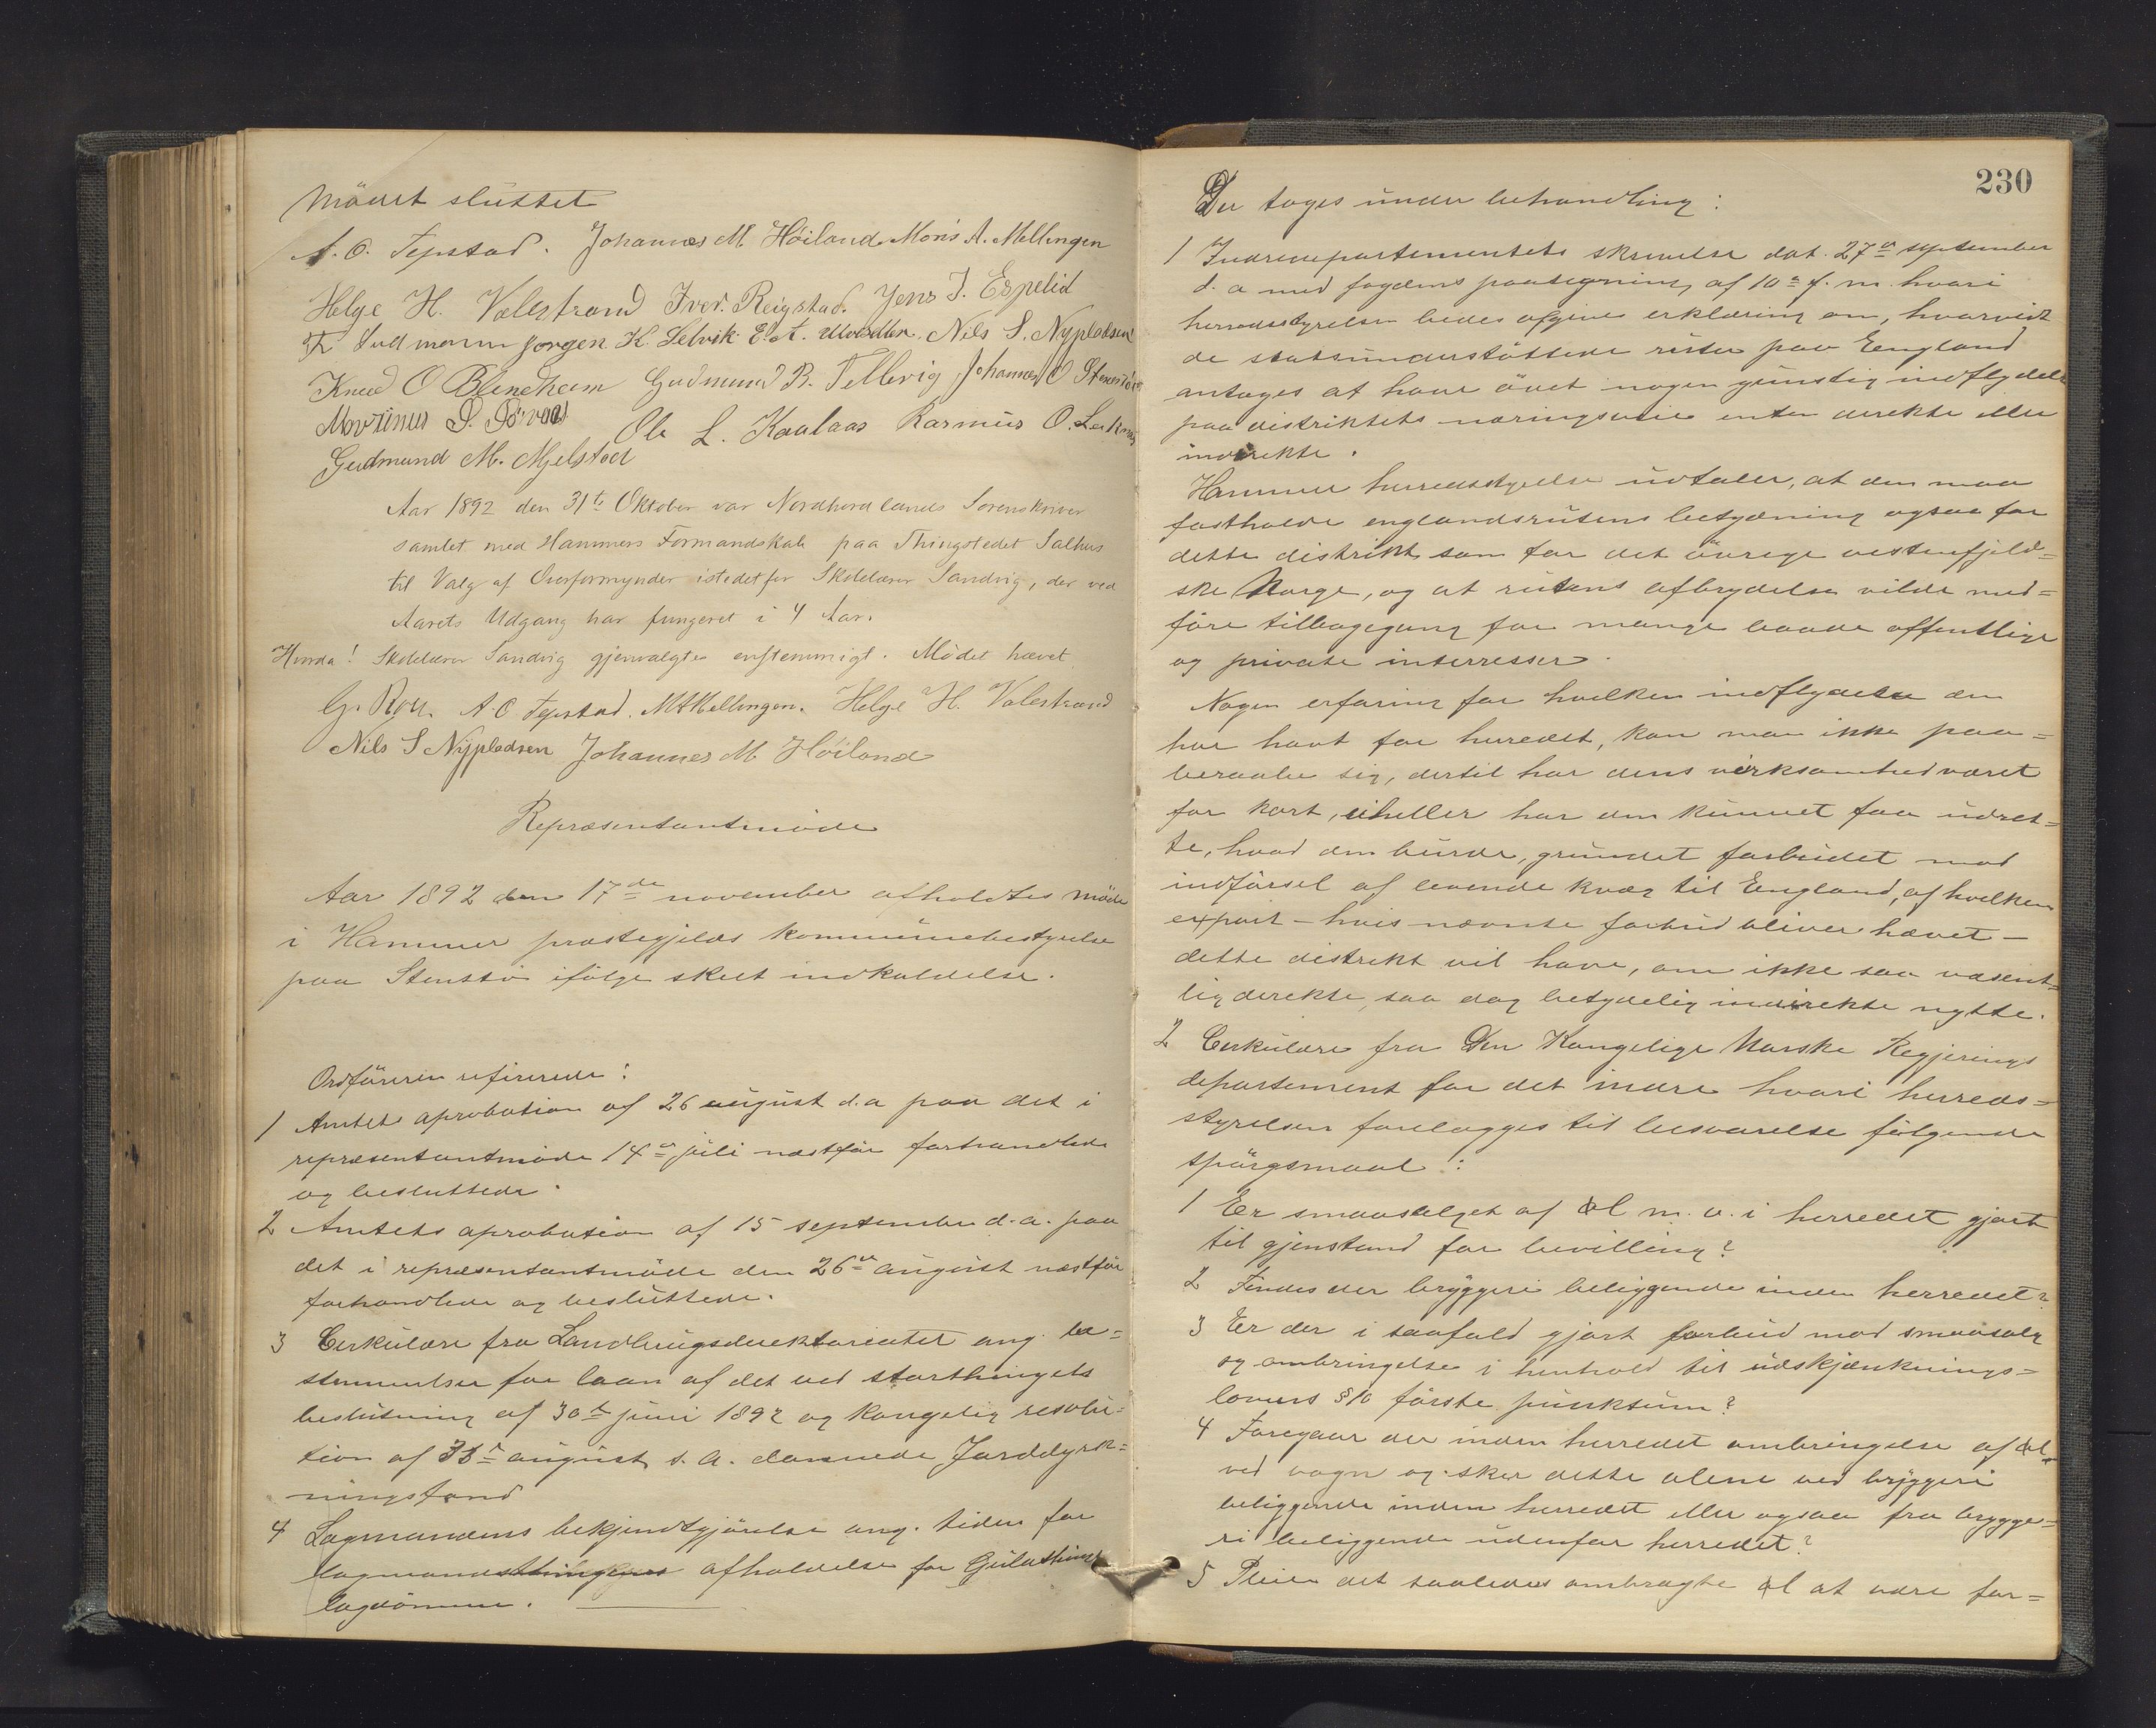 Mödet sluttet
A. O. Tepstad. Johannes M Höiland. Mons A. Mellingen
Helge H. Valestrand Iver. Reigstad. Jens J. Espelid
Gudmann Jørgen. K. Selvik. E. A. Nils S. Nypladsen
Knud O Blindheim Gudmund B. Tellevig Johannes O Stensøe
Martinus Ole L. Kaalaas Rasmus O. Leknes
Gudmund M. Mjelstad
Aar 1892 den 31te Oktober var Nordhordlands Sorenskriver
samlet med Hammers Formandskab paa Thingstedet Salhus
til Valg af Overformynder istedetfor Skolelærer Sandvig, der ved
Aarets Udgang har fungeret i 4 Aar.
Hvorda! Skolelærer Sandvig gjenvalgtes enstemmigt. Mödet hævet
G. Roll. A. O Tepstad. M A Mellingen. Helge H. Valestrand
Nils S Nypladsen Johannes M. Höiland
Repræsentantmöde
Aar 1892 den 17de november afholdtes möde
i Hammer præstegjelds kommunebestyrelse
paa Stensö ifölge skeet indkaldelse.
Ordföreren refererede:
1 Amtets aprobation af 26 august d.a paa det i
repræsentantmöde 14de juli næstför forhandlede
og besluttede.
2 Amtets aprobation af 15 september d.a. paa
det i repræsentantmöde den 26de august næstför
forhandlede og besluttede.
3 Cirkulære fra Landbrugsdirektoriatet ang. be=
stemmelser for laan af det ved storthingets
beslutning af 30te juni 1892 og kongelig resolu=
tion af 31te august s. a. dannede Jorddyrk=
ningsfond
4 Lagmandens bekjendtgjörelse ang. tiden for
lagmandsthingenes afholdelse for Gulathings
lagdömme.
230
Der toges under behandling:
1 Indredepartementets skrivelse dat. 27de september
d. a med fogdens paategning af 10de f. m. hvori
herredsstyrelsen bedes afgive erklæring om, hvorvidt
de statsunderstöttede ruter paa England
antages at have övet nogen gunstig indflydelse
paa distriktets næringsveie enten direkte eller
indirekte.
Hammer herredsstyrelse udtaler, at den maa
fastholde englandsrutens betydning ogsaa for
dette distrikt som for det övrige vestenfjeld=
ske Norge, og at rutens afbrydelse vilde med=
före tilbagegang for mange baade offentlige
og private interresser.
Nogen erfaring for hvilken indflydelse den
har havt for herredet, kan man ikke paa=
beraabe sig, dertil har dens virksomhed været
for kort, eiheller har den kunnet faa udret=
te, hvad den burde, grundet forbudet mod
indförsel af levende kvæg til England, af hvilken
export – hvis nævnte forbud bliver hævet –
dette distrikt vil have, om ikke saa væsent=
lig direkte, saa dog betydelig indirekte nytte.
2 Cirkulære fra Den Kongelige Norske Regjerings
departement for det indre hvori herreds=
styrelsen forelægges til besvarelse fölgende
spörgsmaal:
1 Er smaasalget af öl m. v. i herredet gjort
til gjenstand for bevilling?
2 Findes der bryggeri beliggende inden herredet?
3 Er der i saafald gjort forbud mod smaasalg
og ombringelse i henhold til udskjænknings=
lovens § 10 förste punktum?
4 Foregaar der inden herredet ombringelse af öl
ved vogn og sker dette alene ved bryggeri
beliggende inden herredet eller ogsaa fra brygge=
ri beliggende udenfor herredet?
5 Pleier det saaledes ombragte öl at være for=